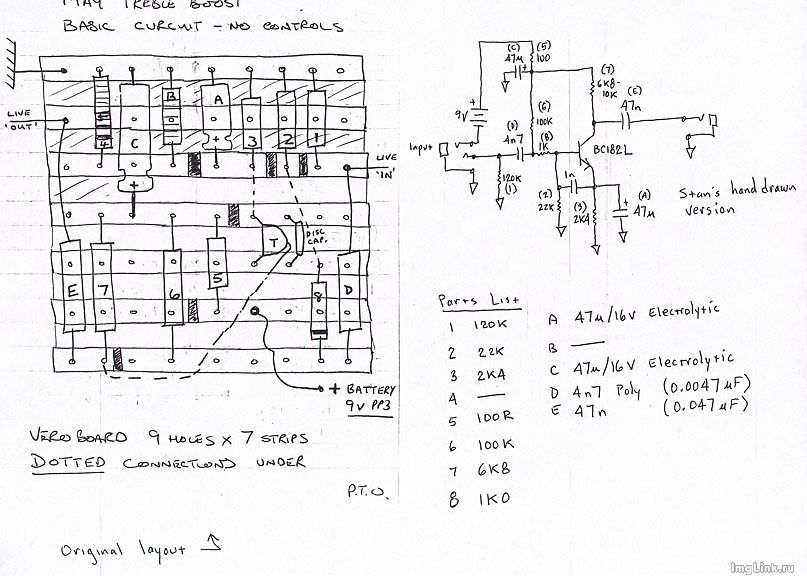 MAY TREBLE BOOST
BASIC CURCUIT - NO CONTROLS
LIVE
'OUT'
B
A
4
C
+
3
2
1
+
LIVE
'IN'
T
DISC
CAP.
E
7
6
5
8
D
+ BATTERY
9V PP3
VEROBOARD 9 HOLES X 7 STRIPS
DOTTED CONNECTIONS UNDER
P.T.O.
Original layout
(C)
47µ
(5)
100
(7)
6K8-
10K
(E)
47n
+
9V
(6)
100K
(D)
4n7
(8)
1K
BC182L
Input
120K
(1)
1n
(2)
22K
(3)
2K4
+
(A)
47µ
Stan's hand drawn
version
Parts List
1 120K
2 22K
3 2K4
4 —
5 100R
6 100K
7 6K8
8 1K0
A 47µ/16V Electrolytic
B —
C 47µ/16V Electrolytic
D 4n7 Poly (0.0047µF)
E 47n (0.047µF)
ImgLink.ru